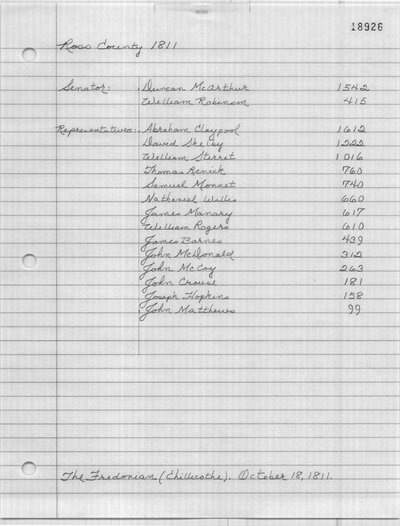 18926
Ross County 1811
Senator: Duncan McArthur 1542
William Robinson 415
Representatives: Abraham Claypool 1612
David Shelby 1222
William Sterret 1016
Thomas Renick 760
Samuel Monnet 740
Nathaniel Willis 660
James Manary 617
William Rogers 610
James Barnes 439
John McDonald 312
John McCoy 263
John Crouse 181
Joseph Hopkins 158
John Matthews 99
The Fredonian (Chillicothe). October 18, 1811.